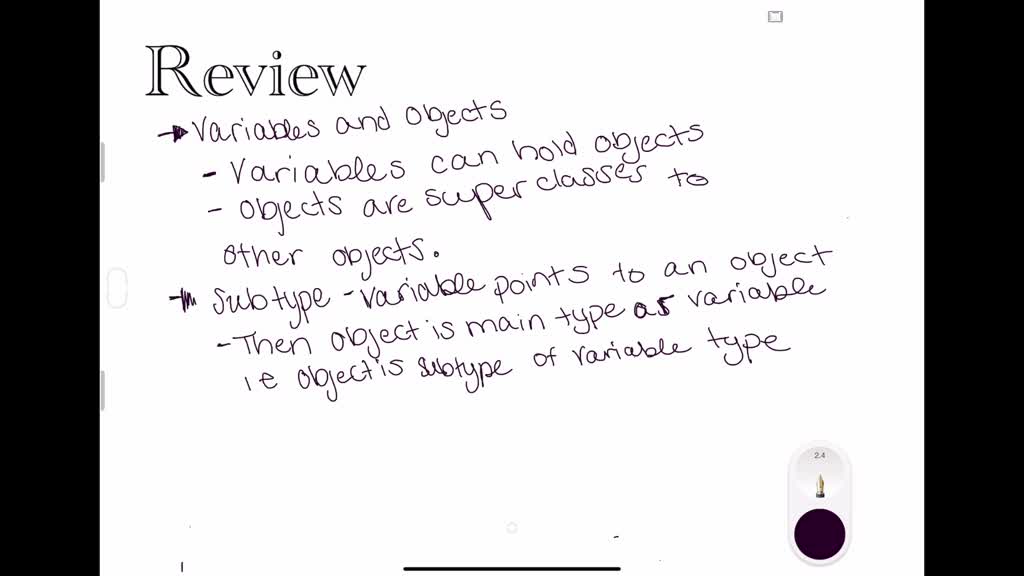 Review
Variables and Objects
- Variables can hold objects
- Objects are super classes to
other objects.
Subtype - variable points to an object
- Then object is main type as variable
ie object is subtype of variable type
2.4